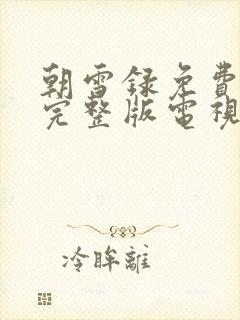 朝雪録免費
完整版電視
冷眸離